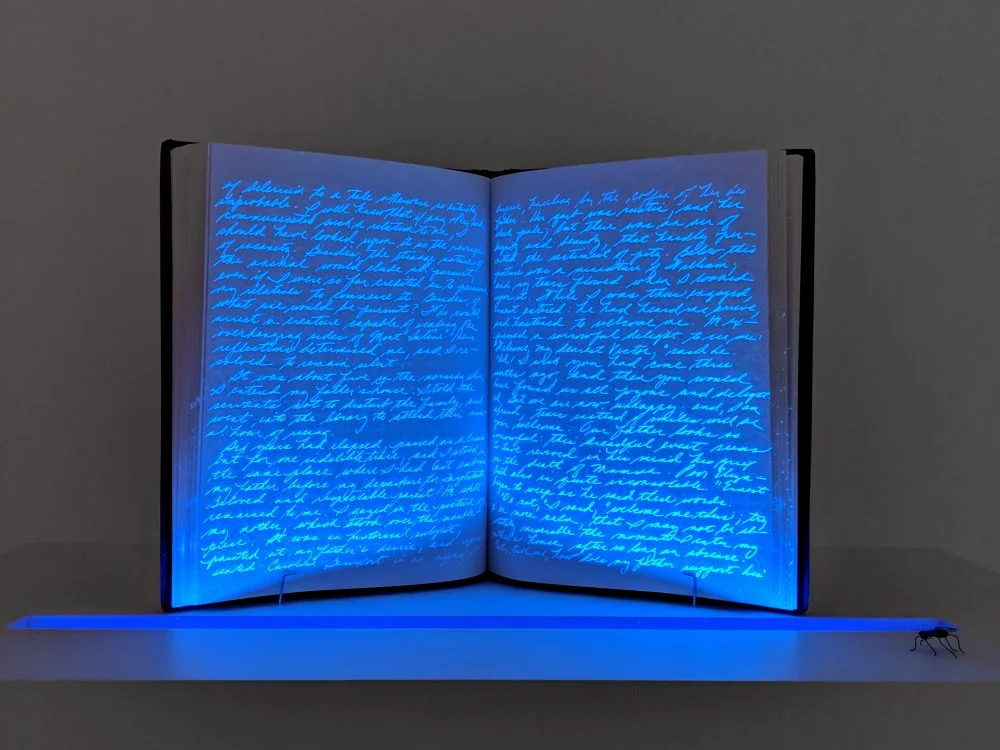 of delirium to a tale otherwise so utterly
improbable. I well knew that if any other had
communicated such a relation to me, I
should have looked upon it as the ravings
of insanity. Besides, the strange nature of
the animal would elude all pursuit,
even if I were so far credited as to persuade
my relatives to commence it. Besides, of
what use would be pursuit? Who could
arrest a creature capable of scaling the
overhanging sides of Mont Salève? These
reflections determined me, and I re-
solved to remain silent.
It was about five in the morning when
I entered my father's house. I told the
servants not to disturb the family, and
went into the library to attend their usual
hour of rising.
Six years had elapsed, passed as a dream
but for one indelible trace, and I stood in
the same place where I had last embraced
my father before my departure for Ingolstadt.
Beloved and respectable parent! He still
remained to me. I gazed on the picture of
my mother, which stood over the mantle
piece. It was an historical subject,
painted at my father's desire, and
Caroline in an agony of
kneeling by the coffin of her dead
Her garb was rustic, and her
pale; but there was an air of
and beauty, that hardly per-
the sentiment of pity. Below this
picture was a miniature of William;
and my tears flowed when I looked
upon it. While I was thus engaged,
entered: he had heard me arrive,
and hastened to welcome me. He ex-
a sorrowful delight to see me:
Welcome, my dearest Victor, said he.
I wish you had come three
months ago, then you would
have found us all and
tears
welcome
sweet
revived
the death of
quite
to weep as he said these words.
not, I said, welcome me thus; try
to be more calm, that I may not be
miserable the moment I enter my
after so long an absence.
how does my father support his